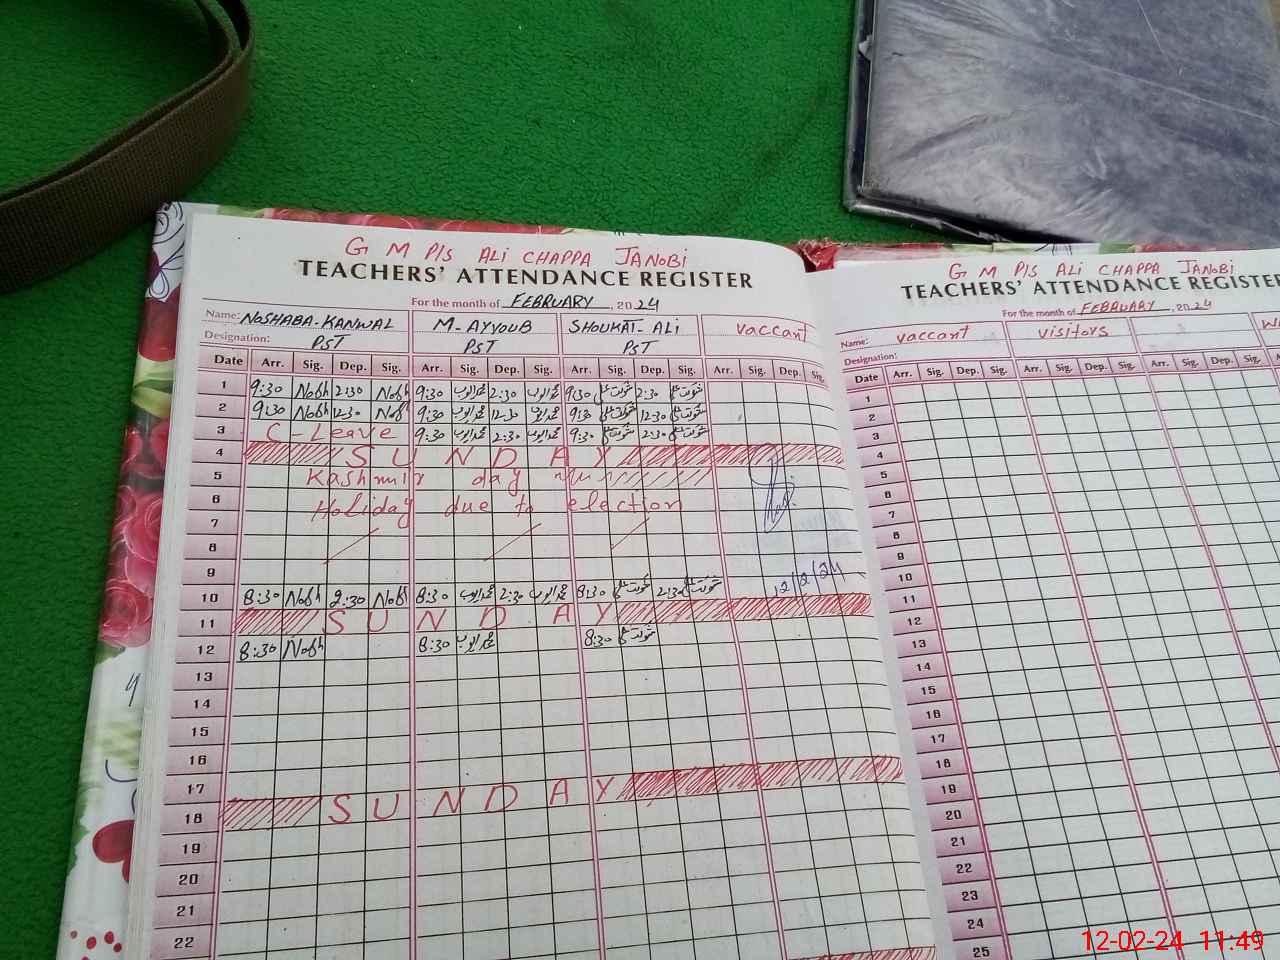 G M P/S ALI CHAPPA JANOBI
TEACHERS' ATTENDANCE REGISTER
For the month of FEBRUARY, 2024
Name: NOSHABA-KANWAL M-AYYOUB SHOUKAT-ALI vaccant
Designation: PST PST PST
Date Arr. Sig. Dep. Sig. Arr. Sig. Dep. Sig. Arr. Sig. Dep. Sig. Arr. Sig. Dep. Sig.
1 9:30 Nosh 2:30 Nosh 9:30 محمد ایوب 2:30 محمد ایوب 9:30 شوکت علی 2:30 شوکت علی
2 9:30 Nosh 12:30 Nosh 9:30 محمد ایوب 12:30 محمد ایوب 9:30 شوکت علی 12:30 شوکت علی
3 C-Leave 9:30 محمد ایوب 2:30 محمد ایوب 9:30 شوکت علی 2:30 شوکت علی
4 SUNDAY
5 Kashmir day
6 Holiday due to election
7
8
9
10 8:30 Nosh 2:30 Nosh 8:30 محمد ایوب 2:30 محمد ایوب 8:30 شوکت علی 2:30 شوکت علی 12/2/24
11 SUNDAY
12 8:30 Nosh 8:30 محمد ایوب 8:30 شوکت علی
13
14
15
16
17
18 SUNDAY
19
20
21
22
G M P/S ALI CHAPPA JANOBI
TEACHERS' ATTENDANCE REGISTER
For the month of FEBRUARY, 2024
Name: vaccant visitors
Designation:
Date Arr. Sig. Dep. Sig. Arr. Sig. Dep. Sig. Arr. Sig. Dep. Sig.
1
2
3
4
5
6
7
8
9
10
11
12
13
14
15
16
17
18
19
20
21
22
23
24
25
12-02-24 11:49